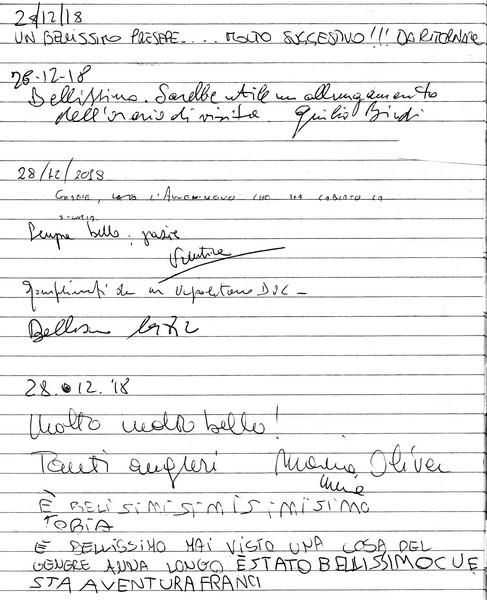 28/12/18
UN BELLISSIMO PRESEPE.... MOLTO SUGGESTIVO!!! DA RITORNARE
28-12-18
Bellissimo. Sarebbe utile un allungamento
dell'orario di visita. Giulio Bindi
28/12/2018
GRAZIE, L'AVVENIMENTO CHE HA CAMBIATO LA
STORIA.
Sempre bello, grazie
Valentina
Complimenti da un napoletano DOC -
28.12.'18
Molto molto bello!
Tanti auguri Maria Oliver
È BELISIMISIMISIMISIMO
TOBIA
È BELLISSIMO MAI VISTO UNA COSA DEL
GENERE ANNA LONGO E STATO BELLISSIMO CUE
STA AVENTURA FRANCI